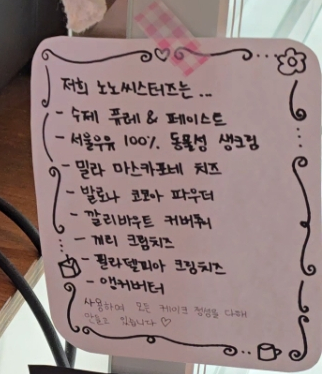 저희 노노씨스터즈는 ...
- 수제 퓨레 & 페이스트
- 서울우유 100% 동물성 생크림
- 밀라 마스카포네 치즈
- 발로나 코코아 파우더
- 깔리바우트 커버춰
- 끼리 크림치즈
- 필라델피아 크림치즈
- 앵커버터
사용하여 모든 케이크 정성을 다해
만들고 있습니다 ♡